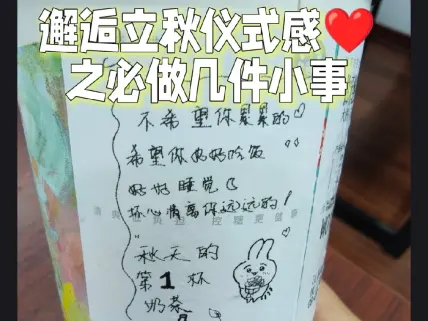 邂逅立秋仪式感❤️
之必做几件小事
不希望你累累的
希望你好好吃饭
好好睡觉
坏心情离你远远的!
秋天的
第1杯
奶茶